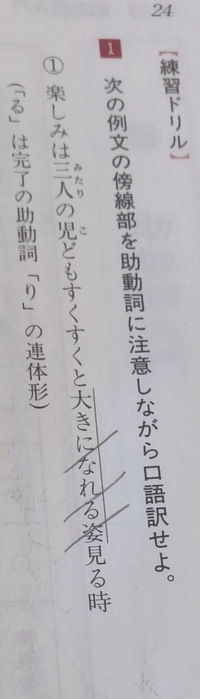 24
【練習ドリル】
1 次の例文の傍線部を助動詞に注意しながら口語訳せよ。
① 楽しみは三人の児どもすくすくと大きになれる姿見る時
みたり こ
(「る」は完了の助動詞「り」の連体形)